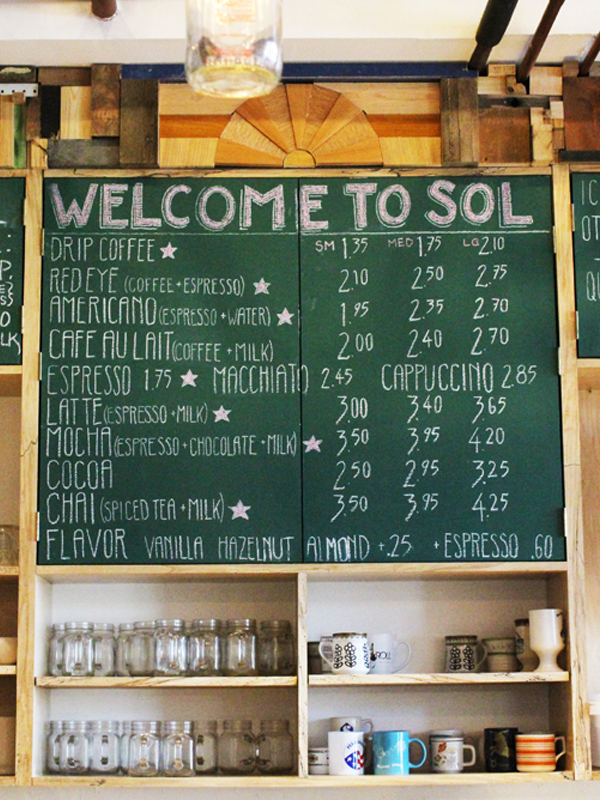 WELCOME TO SOL
DRIP COFFEE ★ SM 1.35 MED 1.75 LG 2.10
RED EYE (COFFEE+ESPRESSO) ★ 2.10 2.50 2.75
AMERICANO (ESPRESSO+WATER) ★ 1.95 2.35 2.70
CAFE AU LAIT (COFFEE + MILK) 2.00 2.40 2.70
ESPRESSO 1.75 ★ MACCHIATO 2.45 CAPPUCCINO 2.85
LATTE (ESPRESSO+MILK) ★ 3.00 3.40 3.65
MOCHA (ESPRESSO+CHOCOLATE+MILK) ★ 3.50 3.95 4.20
COCOA 2.50 2.95 3.25
CHAI (SPICED TEA + MILK) ★ 3.50 3.95 4.25
FLAVOR VANILLA HAZELNUT ALMOND +.25 +ESPRESSO .60